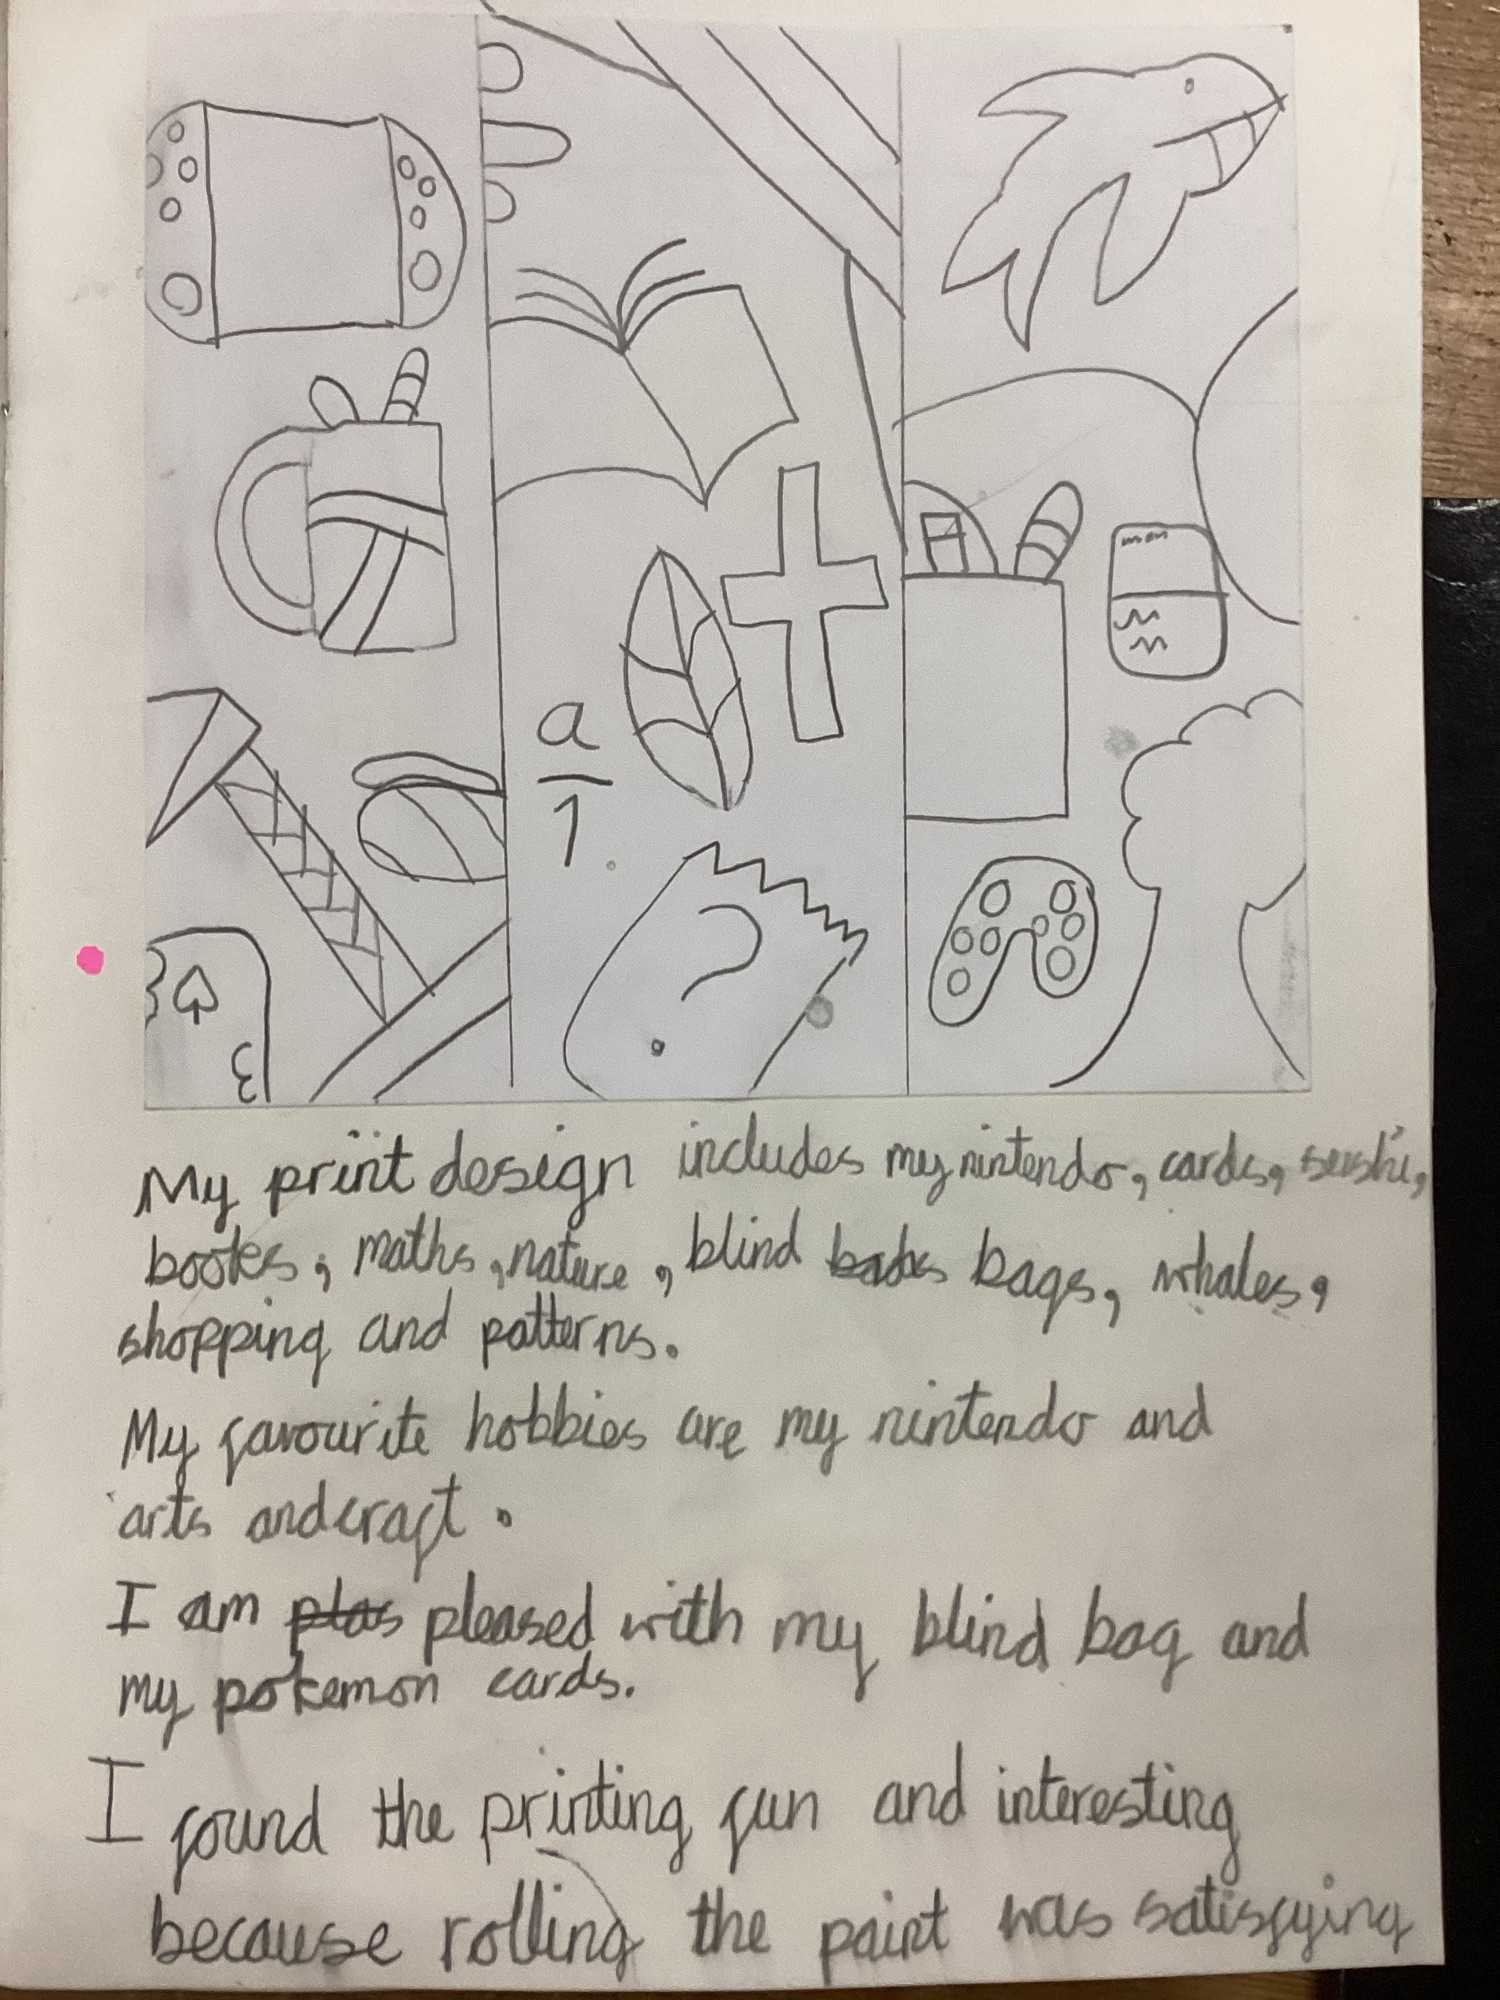 a
1
?
3
My print design includes my nintendo, cards, sushi,
books, maths, nature, blind bags, whales,
shopping and patterns.
My favourite hobbies are my nintendo and
arts and craft.
I am plas pleased with my blind bag and
my pokemon cards.
I found the printing fun and interesting
because rolling the paint was satisfying